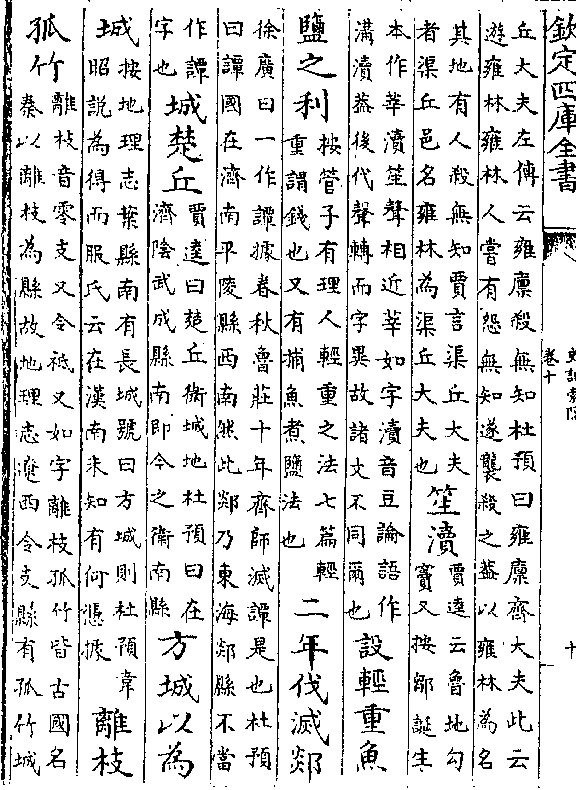 欽定四庫全書
史記索隱
卷十
十
丘大夫左傳云雍廩殺無知杜預曰雍廩齊大夫此云
遊雍林雍林人嘗有怨無知遂襲殺之葢以雍林為名
其地有人殺無知賈言渠丘大夫
者渠丘邑名雍林為渠丘大夫也
笙瀆
賈逵云魯地勾
竇又按鄒誕生
本作莘瀆笙聲相近莘如字瀆音豆論語作
溝瀆葢後代聲轉而字異故諸文不同爾也
設輕重魚
鹽之利
按管子有理人輕重之法七篇輕
重謂錢也又有捕魚煮鹽法也
二年伐滅郯
徐廣曰一作譚據春秋魯莊十年齊師滅譚是也杜預
曰譚國在濟南平陵縣西南然此郯乃東海郯縣不當
作譚
字也
城楚丘
賈逵曰楚丘衞城地杜預曰在
濟陰武成縣南即今之衞南縣
方城以為
城
按地理志葉縣南有長城號曰方城則杜預韋
昭說為得而服氏云在漢南未知有何憑據
離枝
孤竹
離枝音零支又令祗又如字離枝孤竹皆古國名
秦以離枝為縣故地理志遼西令支縣有孤竹城